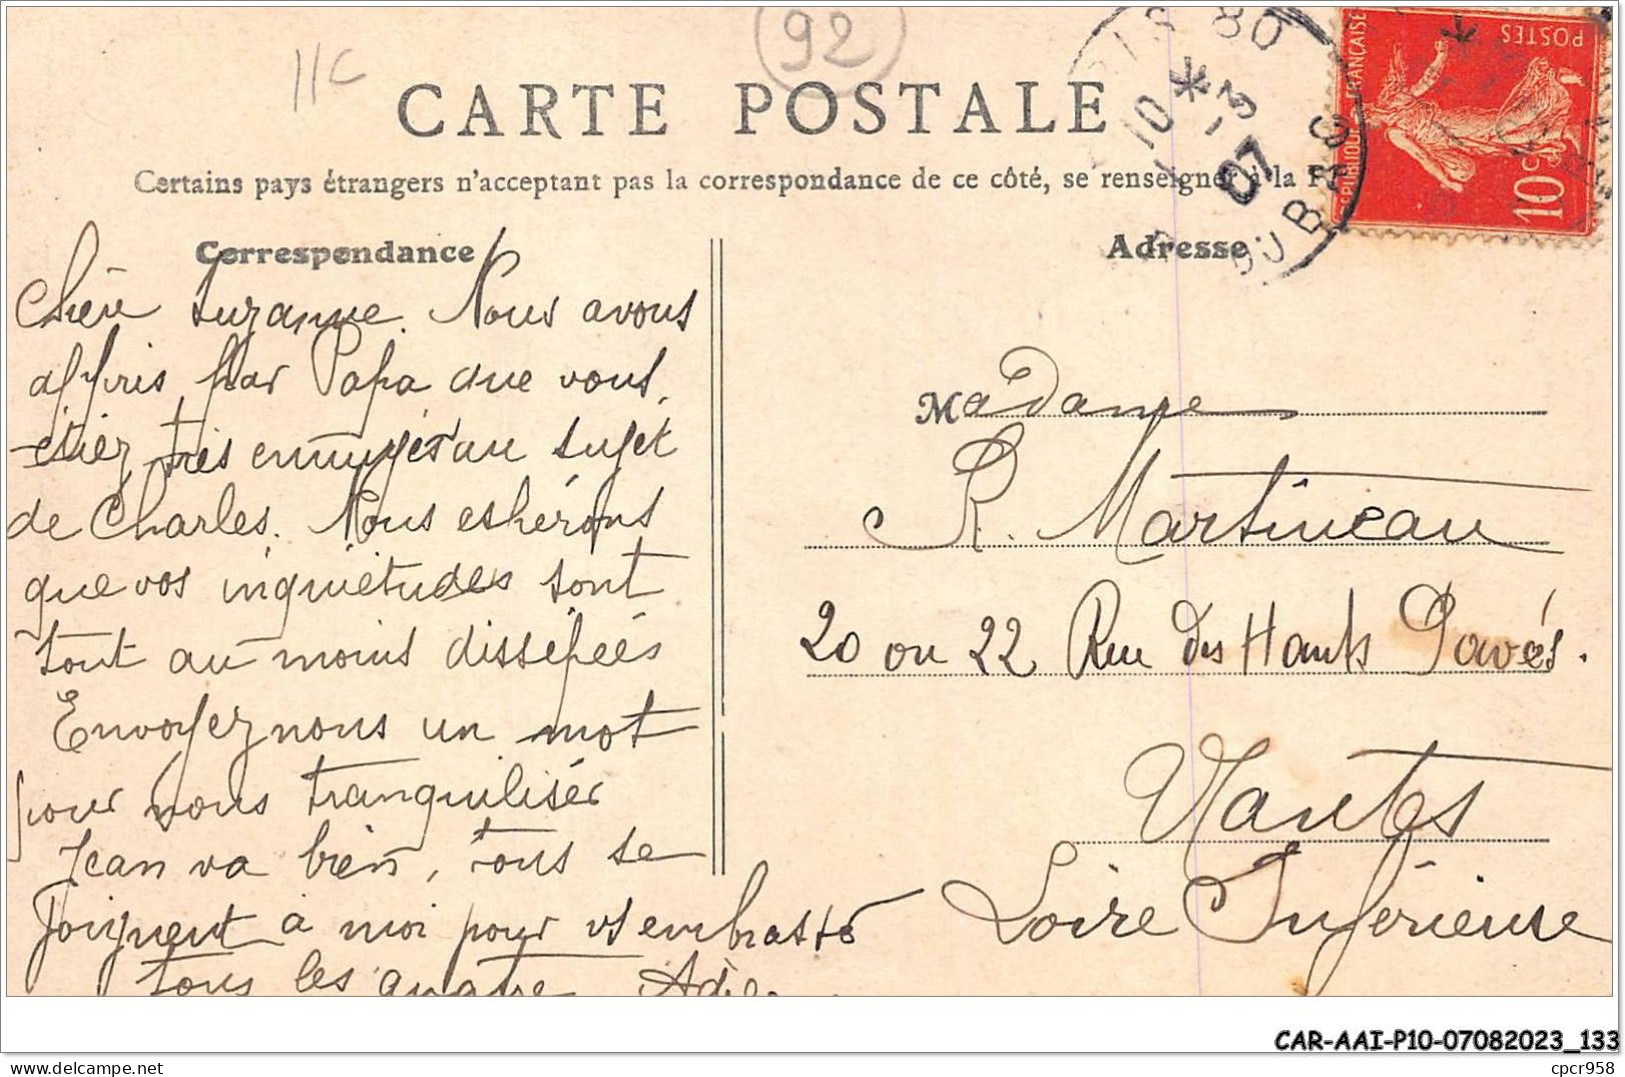 11c
92
CARTE POSTALE
Certains pays étrangers n'acceptant pas la correspondance de ce côté, se renseigner à la P
Correspondance
Adresse
80
10 * -3
07
DU BAC
RÉPUBLIQUE FRANÇAISE
POSTES
10c
Chère Suzanne. Nous avons
appris par Papa que vous
étiez très ennuyés au sujet
de Charles. Nous espérons
que vos inquiétudes sont
tout au moins dissépées
Envoyez nous un mot
pour nous tranquiliser
Jean va bien, tous se
joignent à moi pour vs embrasser
tous les quatre Adèle
Madame
R. Martineau
20 ou 22 Rue des Hauts Pavés.
Nantes
Loire Inférieure
CAR-AAI-P10-07082023_133
www.delcampe.net
cpcr958